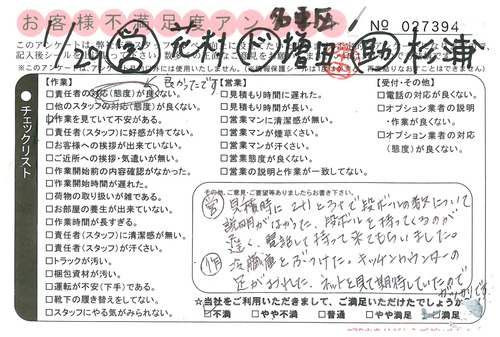 お客様不満足度アン
No 027394
名東区
1/29 営 花村 ド 増田 助 杉浦
このアンケートは
※このアンケートは、
以外には使用いたしません。
記入後シール
【作業】
良かったです
□責任者の対応(態度)が良くない。
□他のスタッフの対応(態度)が良くない。
□作業を見ていて不安がある。
□責任者(スタッフ)に好感が持てない。
□お客様への挨拶が出来ていない。
□ご近所への挨拶・気遣いが無い。
□作業開始前の内容確認がなかった。
□作業開始時間が遅れた。
□荷物の取り扱いが雑である。
□お部屋の養生が出来ていない。
□作業時間が長すぎる。
□責任者(スタッフ)に清潔感が無い。
□責任者(スタッフ)が汗くさい。
□トラックが汚い。
□梱包資材が汚い。
□運転が不安(下手)である。
□靴下の履き替えをしてない。
□スタッフにやる気がみられない。
チェックリスト
【営業】
□見積もり時間に遅れた。
□見積もり時間が長い。
□営業マンに清潔感が無い。
□営業マンが煙草くさい。
□営業マンが汗くさい。
□営業態度が良くない。
□営業の説明と作業が一致してない。
【受付・その他】
□電話の対応が良くない。
□オプション業者の説明
・作業が良くない。
□オプション業者の対応
(態度)が良くない。
その他、ご意見・ご要望等ありましたらお書き下さい。
営 見積時に
段ボールの数について
説明がなかった、段ボールを持ってくるのが
遅く、電話して持って来てもらいました。
作 冷蔵庫をぶつけた。キッチンカウンターの
足がおわれた、ネットを見て期待していたので
ガッカリです。
☆当社をご利用いただきまして、ご満足いただけたでしょうか
□不満 □やや不満 □普通 □やや満足 □満足